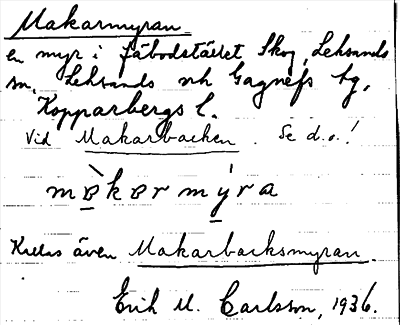 Makarmyran
en myr i fäbodstället Skog, Leksands
sn, Leksands och Gagnefs tg,
Kopparbergs l.
Vid Makarbacken. Se d.o.!
mɐ̀kɐrmýra
Kallas även Makarbacksmyran.
Erik M. Carlsson, 1936.